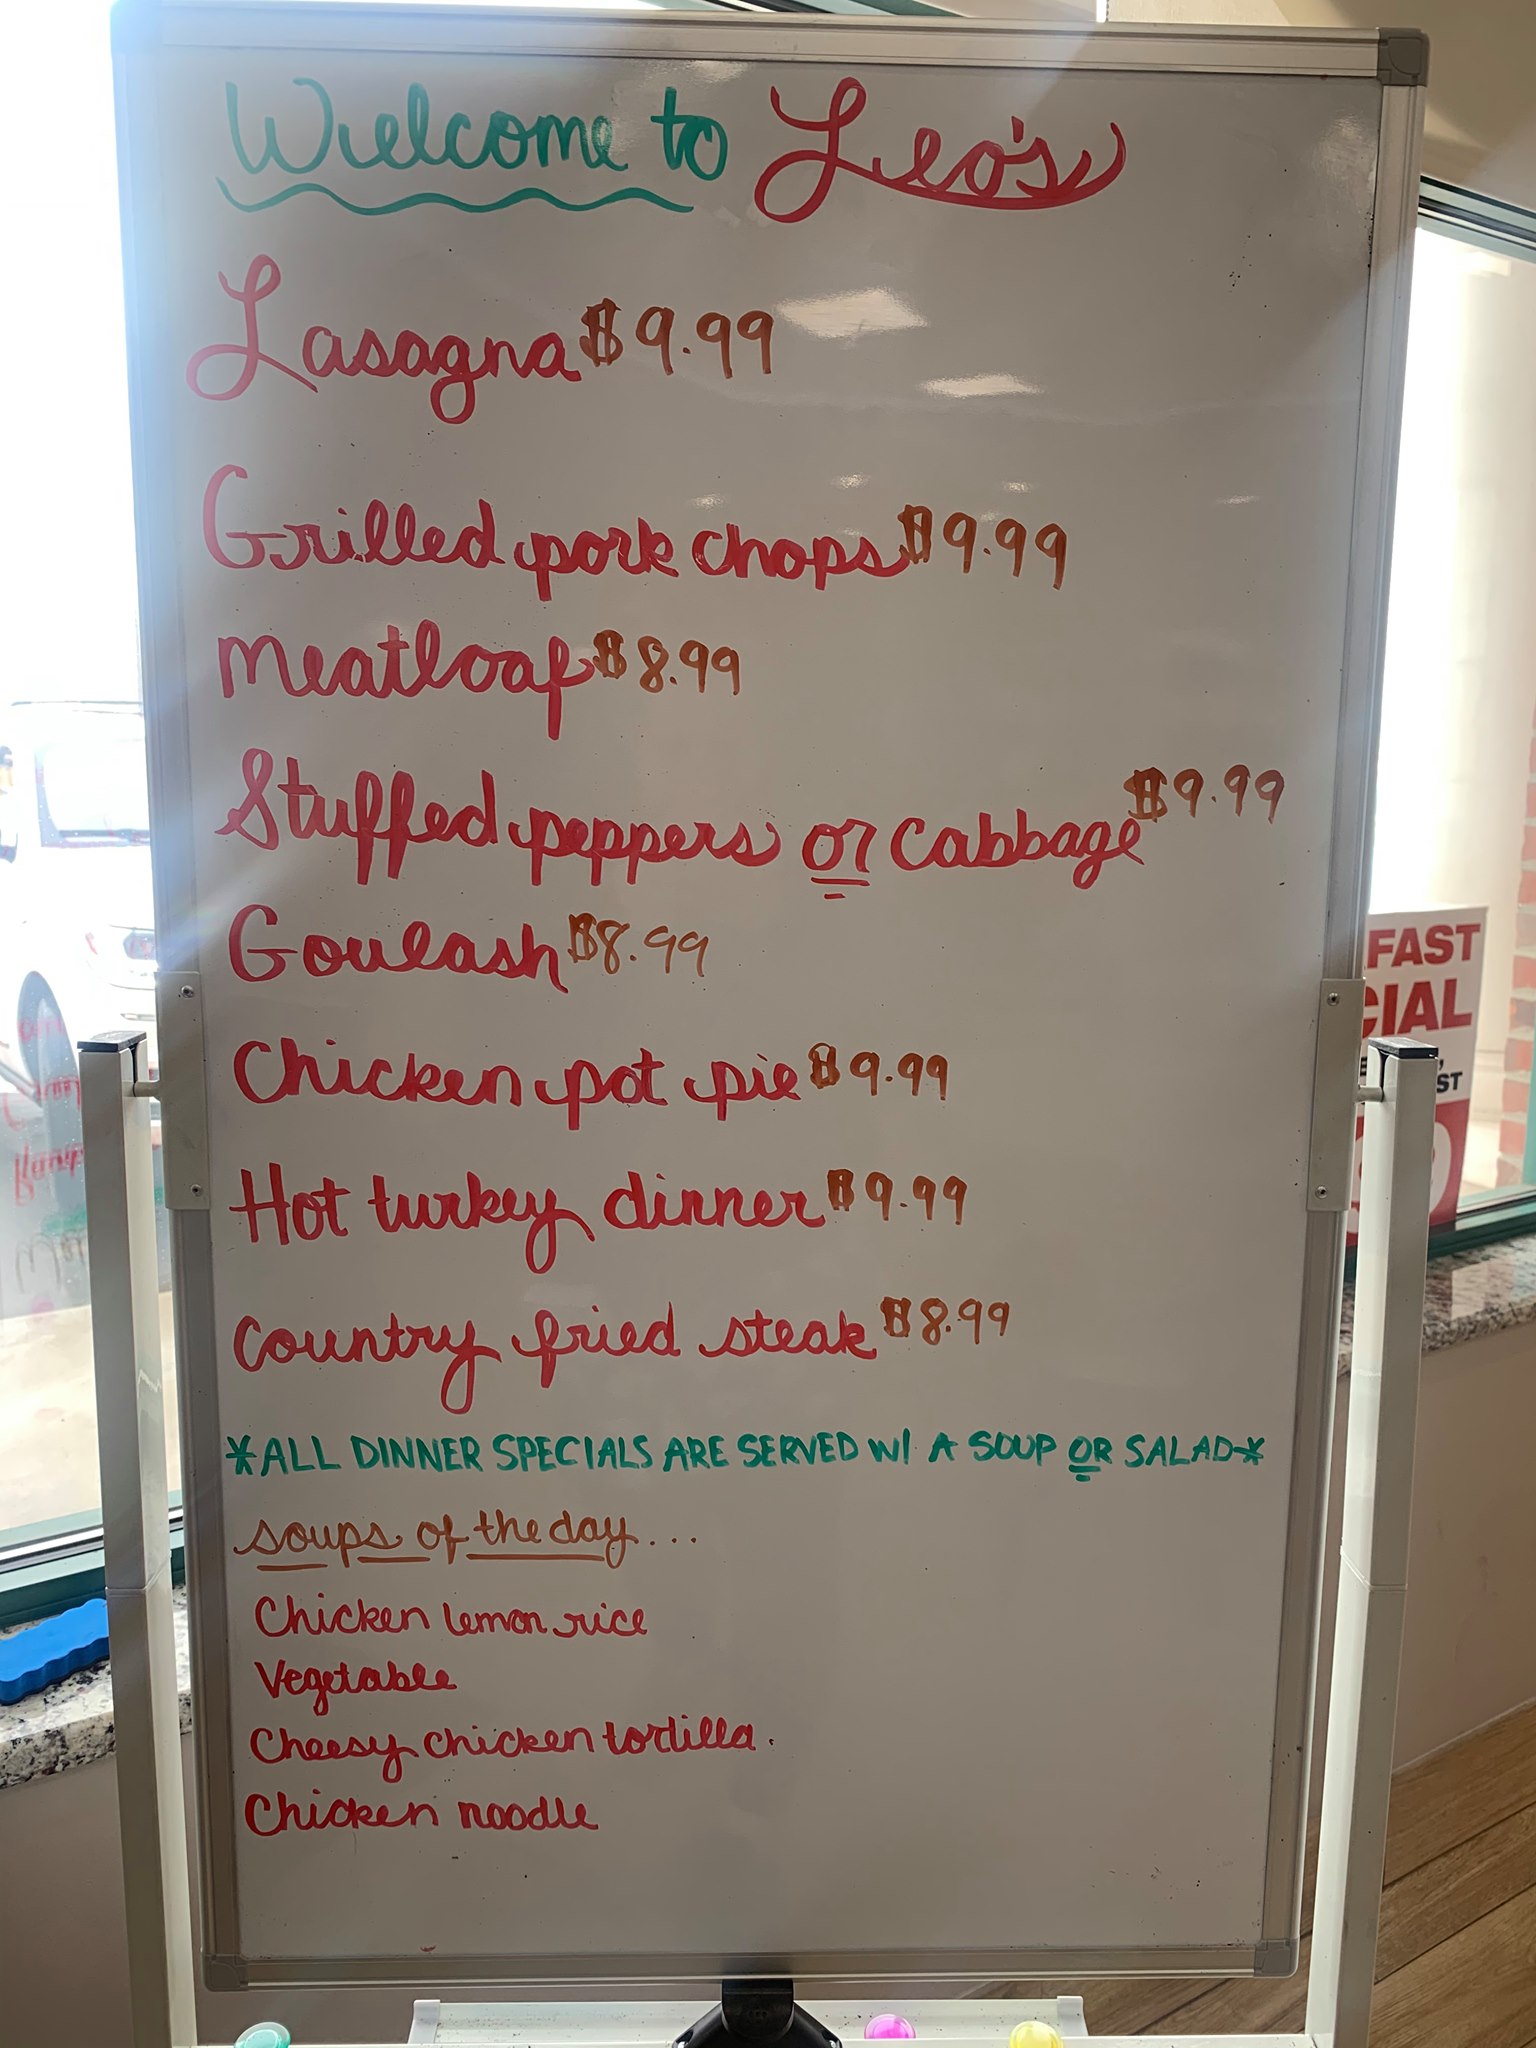 Welcome to Leo's
Lasagna $9.99
Grilled pork chops $9.99
Meatloaf $8.99
Stuffed peppers or cabbage $9.99
Goulash $8.99
Chicken pot pie $9.99
Hot turkey dinner $9.99
Country fried steak $8.99
*ALL DINNER SPECIALS ARE SERVED W/ A SOUP OR SALAD*
soups of the day...
Chicken lemon rice
Vegetable
Cheesy chicken tortilla.
Chicken noodle
FAST
CIAL
ST